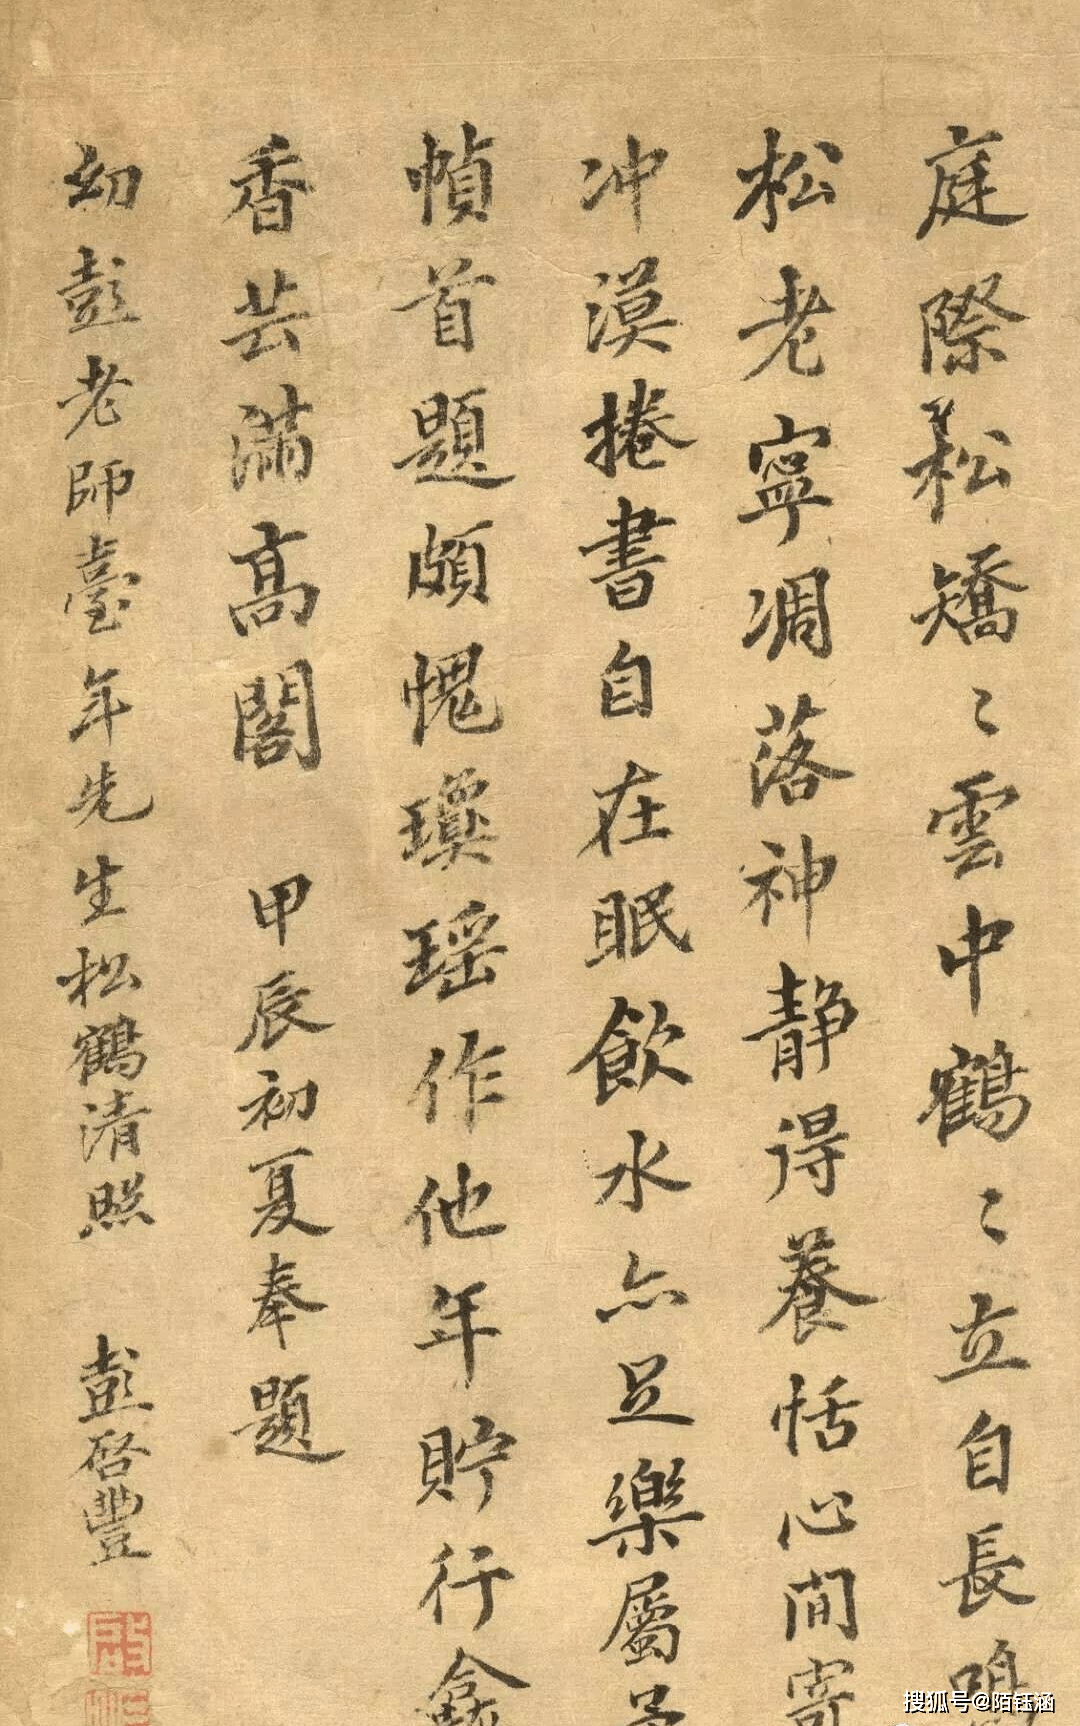 庭際松矯〻雲中鶴〻立自長鳴
松老寧凋落神静得養恬心閒寄
冲漠捲書自在眠飲水亦足樂屬予
幀首題頗愧瓊瑶作他年貯行龕
香芸滿高閣 甲辰初夏奉題
幼彭老師臺年先生松鶴清照 彭啓豐
搜狐号@陌钰涵